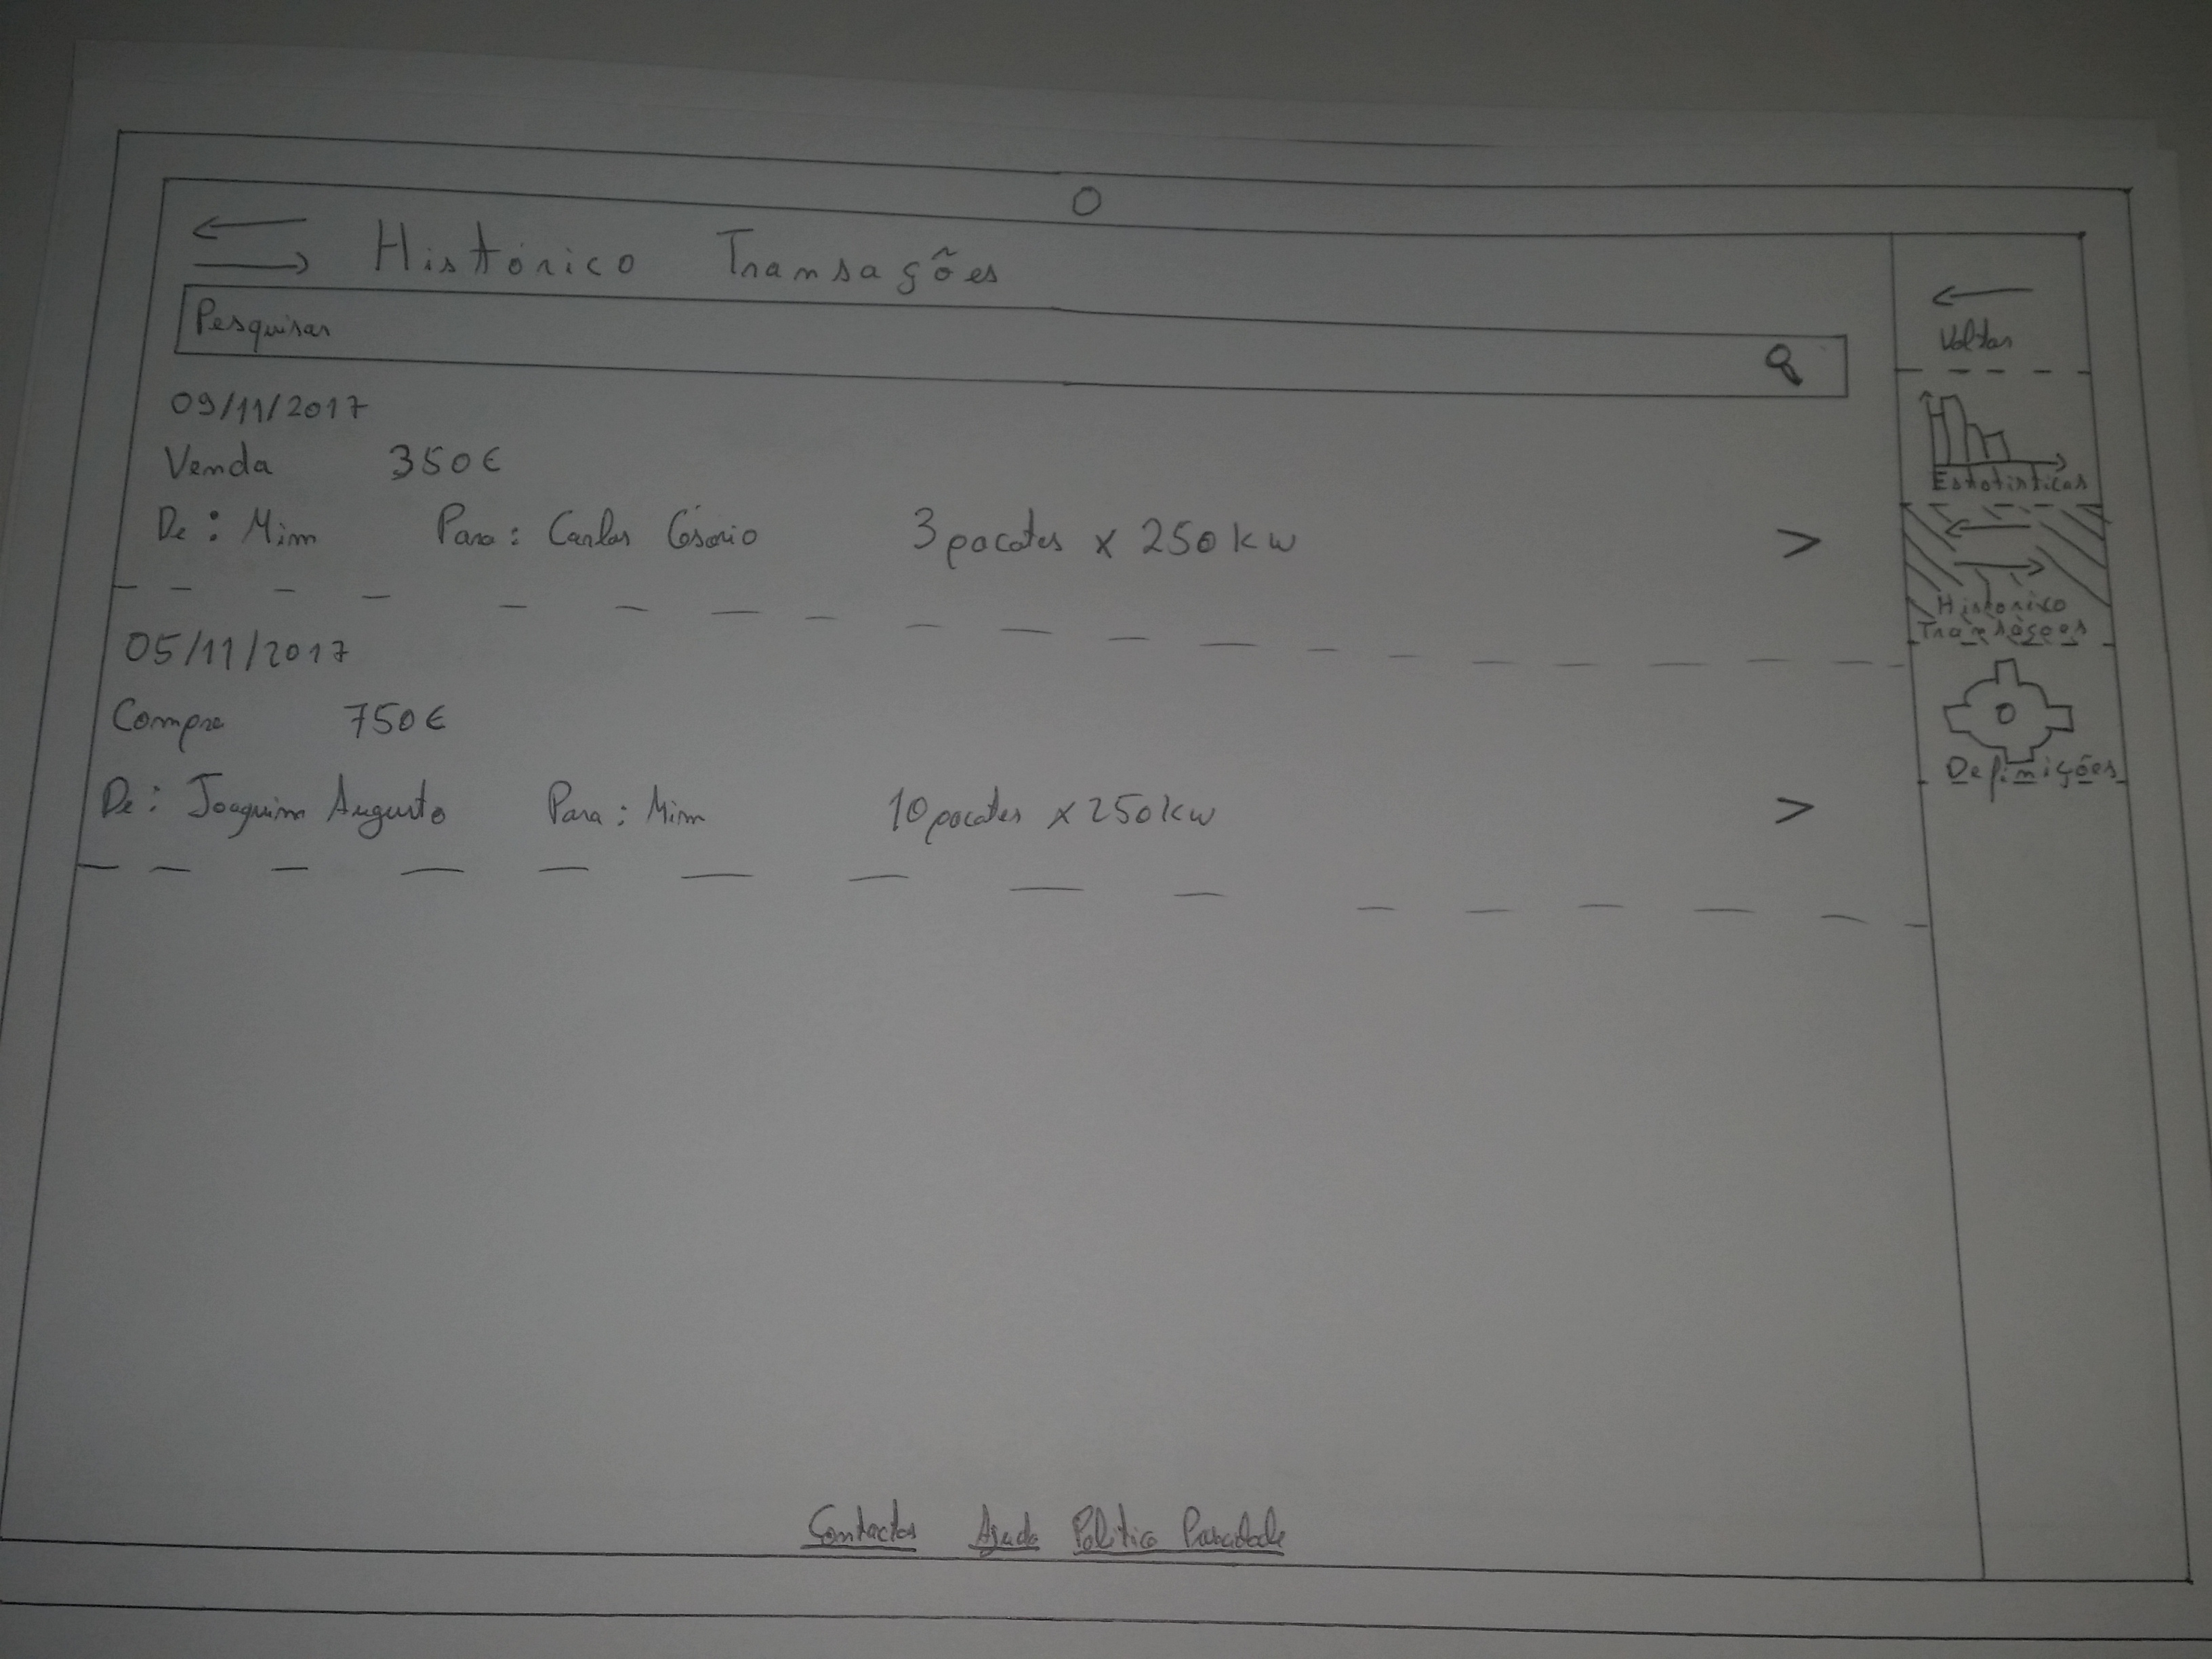 Histórico Transações
Pesquisar
09/11/2017
Venda 350€
De: Mim Para: Carlos Césario 3 pacotes x 250kw >
05/11/2017
Compra 750€
De: Joaquim Augusto Para: Mim 10 pacotes x 250kw >
Voltar
Estatisticas
Historico
Transações
Definições
Contactos Ajuda Politica